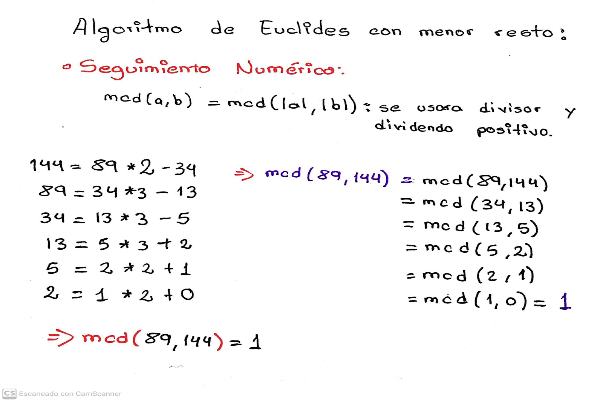 Algoritmo de Euclides con menor resto:
• Seguimiento Numérico:
mcd(a,b) = mcd(|a|,|b|): se usara divisor y
dividendo positivo.
144 = 89 * 2 - 34
89 = 34 * 3 - 13
34 = 13 * 3 - 5
13 = 5 * 3 + 2
5 = 2 * 2 + 1
2 = 1 * 2 + 0
=> mcd(89,144) = mcd(89,144)
= mcd(34,13)
= mcd(13,5)
= mcd(5,2)
= mcd(2,1)
= mcd(1,0) = 1
=> mcd(89,144) = 1
CS Escaneado con CamScanner